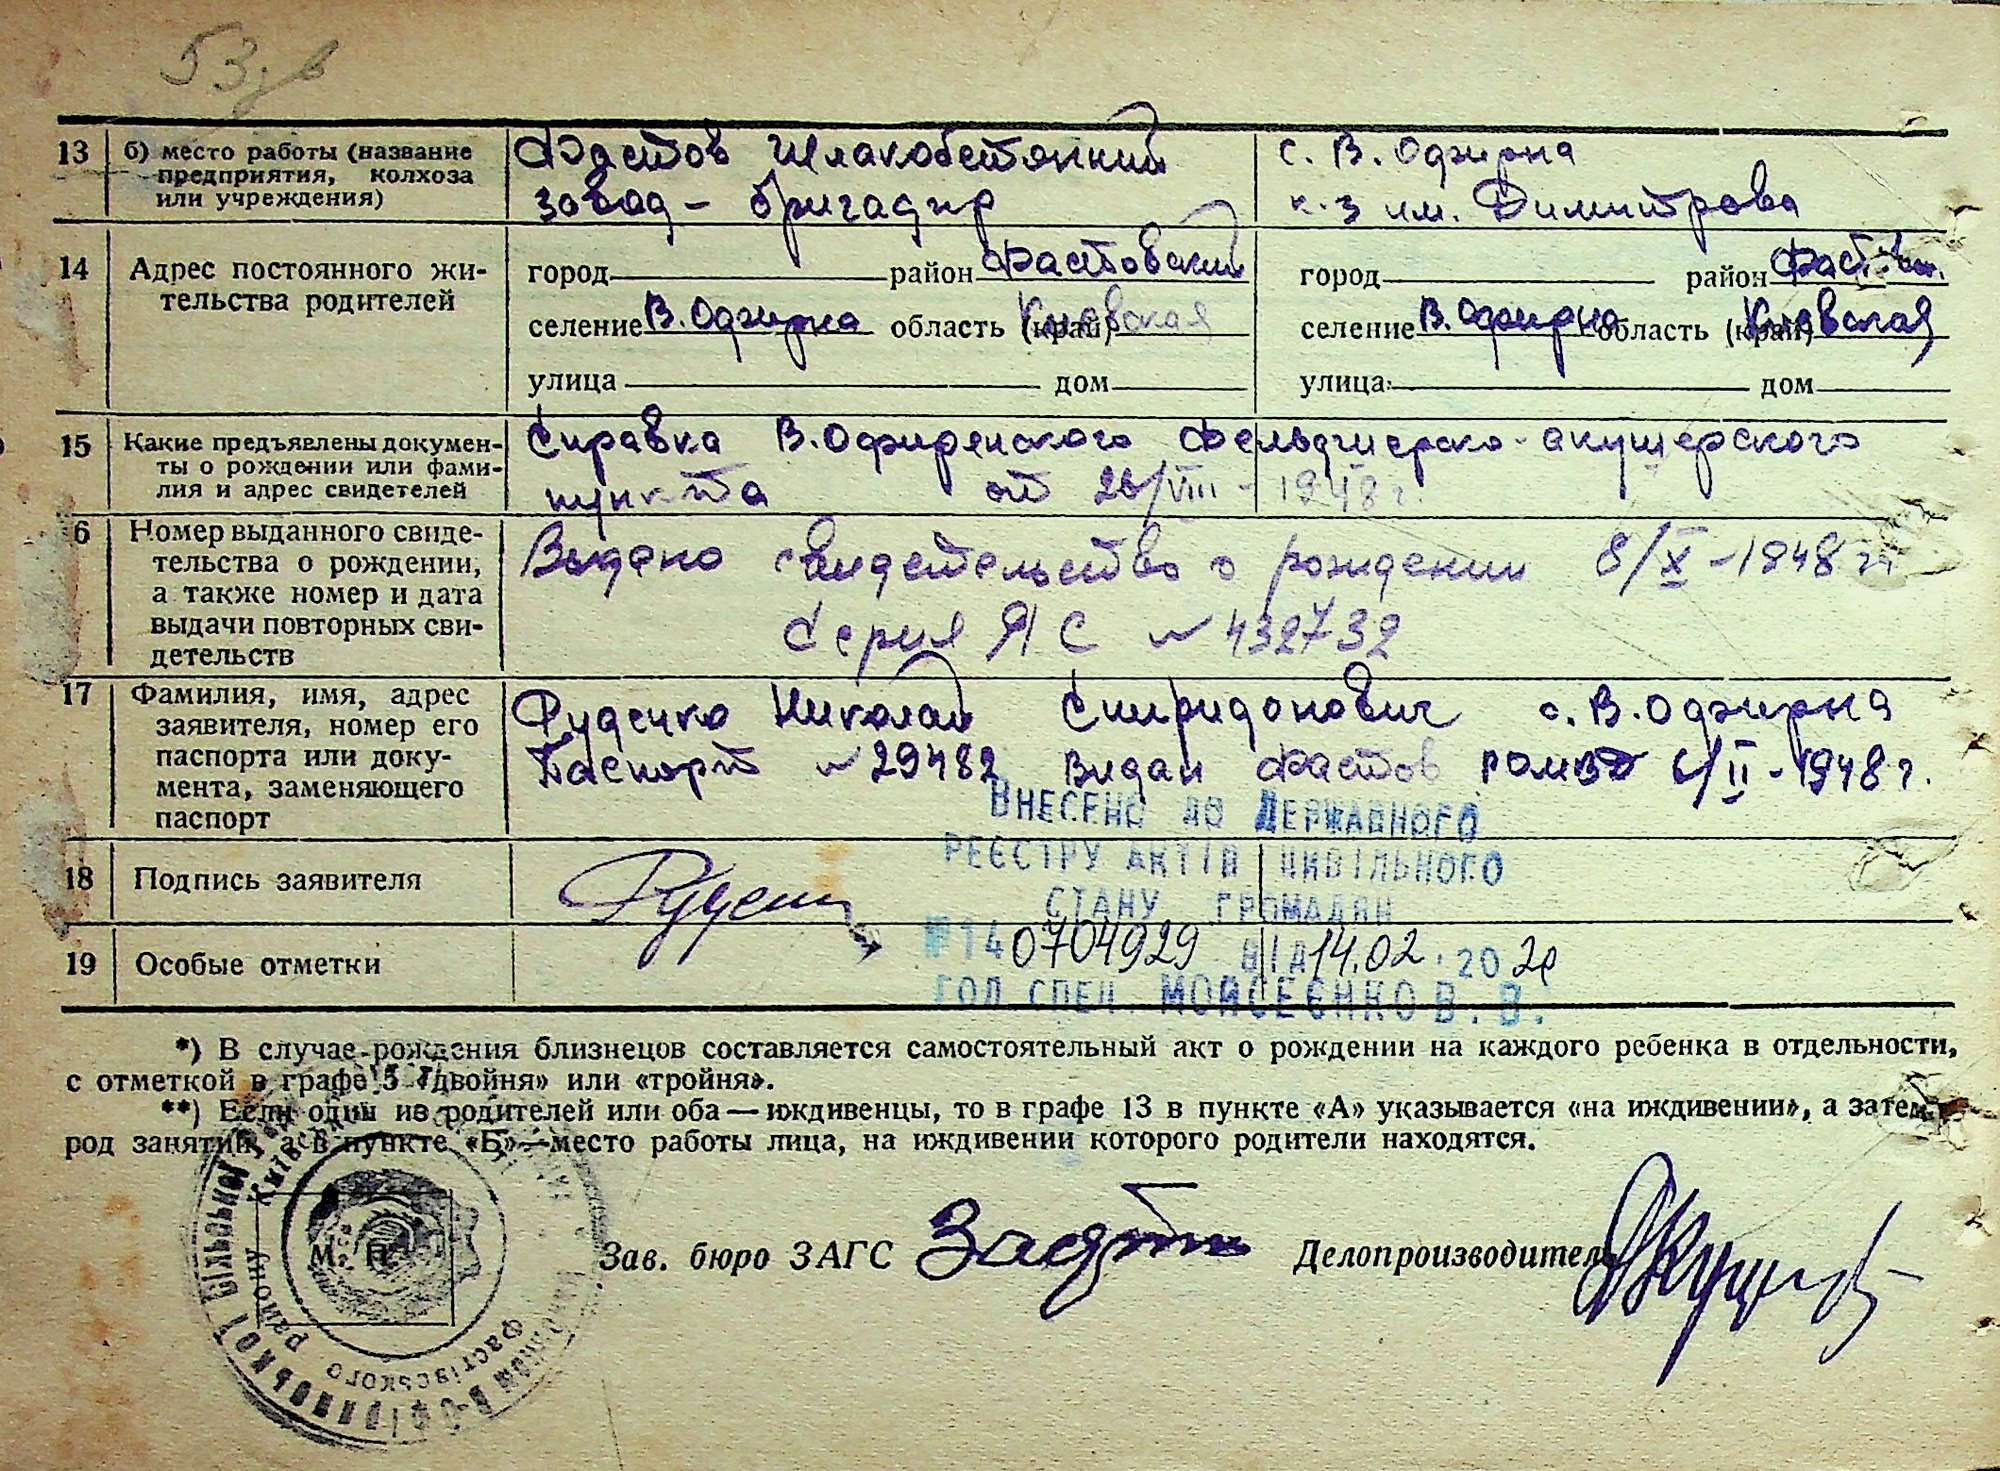 53
13 б) место работы (название предприятия, колхоза или учреждения)
Фастов Шлакобетонний
завод - бригадир
с. В. Оджирна
к-з им. Димитрова
14 Адрес постоянного жительства родителей
город район Фастовский
селение В. Оджирна область (край) Киевская
улица дом
город район Фастов
селение В. Оджирна область (край) Киевская
улица дом
15 Какие предъявлены документы о рождении или фамилия и адрес свидетелей
Справка В. Офирянского Фельдшерско-акушерского
пункта от 26/VIII - 1948 г.
6 Номер выданного свидетельства о рождении, а также номер и дата выдачи повторных свидетельств
Выдано свидетельство о рождении 8/X - 1948 г.
Серия ЯС N 432732
17 Фамилия, имя, адрес заявителя, номер его паспорта или документа, заменяющего паспорт
Руденко Николай Спиридонович с. В. Оджирна
Паспорт N 29482 видан Фастов 6/II - 1948 г.
ВНЕСЕНО ДО ДЕРЖАВНОГО
РЕЄСТРУ АКТІВ ЦИВІЛЬНОГО
СТАНУ ГРОМАДЯН
18 Подпись заявителя
19 Особые отметки
№ 140704929 ВІД 14.02.2020
ГОЛ СПЕЦ. МОЙСЕЄНКО В. В.
*) В случае рождения близнецов составляется самостоятельный акт о рождении на каждого ребенка в отдельности,
с отметкой в графе 5 «двойня» или «тройня».
**) Если один из родителей или оба—иждивенцы, то в графе 13 в пункте «А» указывается «на иждивении», а затем
род занятий, а в пункте «Б»—место работы лица, на иждивении которого родители находятся.
М. П.
Фастівського району
Зав. бюро ЗАГС
Делопроизводитель